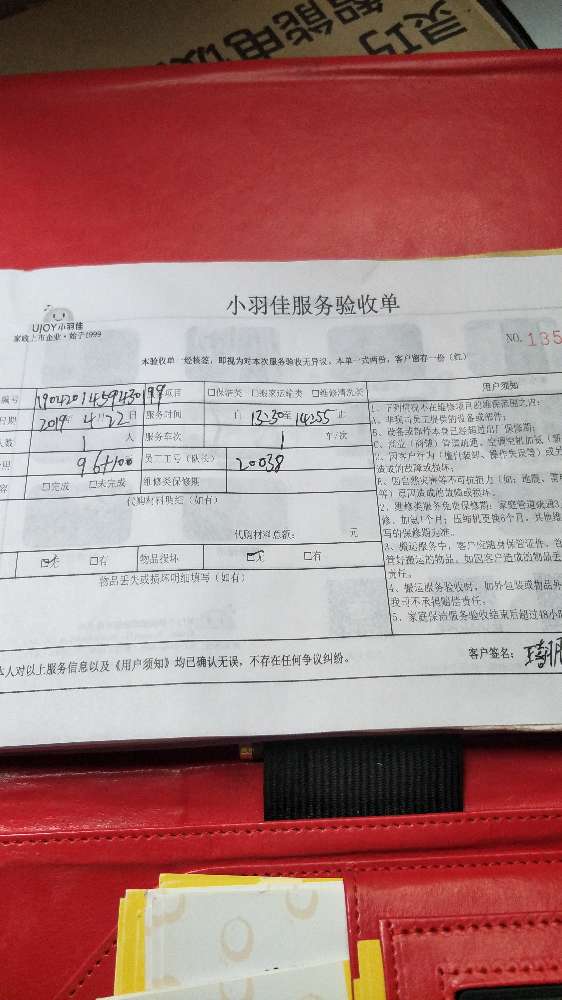 灵巧
智能电饭
小羽佳服务验收单
UJOY小羽佳
家政上市企业·始于1999
NO. 135
本验收单一经核签,即视为对本次服务验收无异议。本单一式两份,客户留存一份(红)
编号 1904201459430199 项目 □保洁类 □搬家运输类 □维修清洗类 用户须知
日期 2019年 4月22日 服务时间 自 13:30至 14:55 止
人数 人 服务车次 1 车/次
96+100 员工工号(队长) 20038
容 □完成 □未完成 维修类保修期
代购材料明细(如有)
代购材料总额: 元
☑无 □有 物品损坏 ☑无 □有
物品丢失或损坏明细填写(如有)
1、下列情况不在维修项目的维保范围之内:
A、非我司员工维修的设备或部件;
B、设备或部件本身已经超过出厂保修期;
造成的故障或损坏;
等)意外造成的故障或损坏。
2、维修类服务免费保修期:家庭管道疏通3
修、加氟1个月;压缩机更换6个月,其他维
写的保修期为准。
3、搬运服务中,客户应随身保管证件、首
管好搬运的物品。如因客户造成的物品丢
责任。
4、搬运服务验收时,如外包装或物品外
我司不承担赔偿责任。
5、家庭保洁服务验收结束后超过48小时
本人对以上服务信息以及《用户须知》均已确认无误,不存在任何争议纠纷。 客户签名: